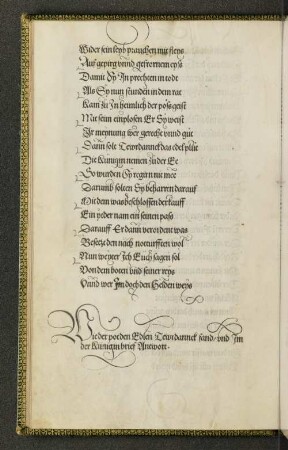 Wider sein leyb prauchen mit fleys
Auf gepirg vnnd gefrornem eys
Damit Sy In prechten in todt
Als Sy nun stunden in dem rat
Kam zu In heimlich der poss geist
Mit seim einplosen Er Sy weist
Ir meynung wer gerecht vnnd gut
Dann solt Tewrdannck das edl plut
Die Kunigin nemen zu der Ee
So wurden Sy regirn nit mee
Darumb solten Sy beharren darauf
Mit dem was beschlossen der kauff
Ein yeder nam ein seinen pass
Darauff Er dann verordent was
Besetzt den nach notturfften wol
Nun weyter Ich Euch sagen sol
Von dem boten vnd seiner reys
Vnnd wer Im doch den Helden weys
Wie der pot den Edlen Tewrdannck fand, vnd Im
der Kunigin brief Antwort.